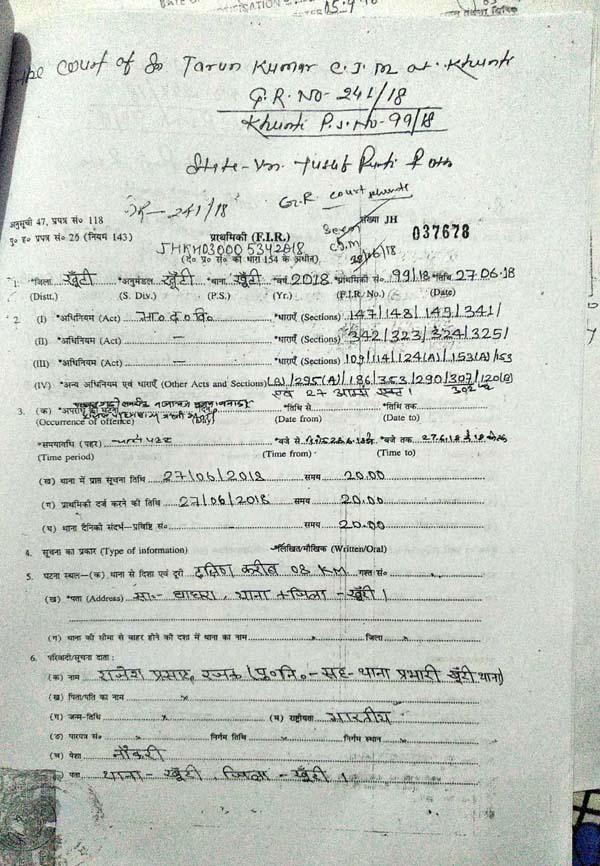 The Court of Sri Tarun Kumar C.J.M at. Khunti
G.R. No- 241/18
Khunti P.S. No- 99/18
State- Vrs. Yusuf Purti & Ors
G.R Court Khunti
अनुसूची 47, प्रपत्र सं० 118 GR- 241/18
Seen संख्या JH 037678
पु० ह० प्रपत्र सं० 25 (नियम 143) प्राथमिकी (F.I.R.) CJM
JHKH030005342018 (द० प्र० सं० की धारा 154 के अधीन) 28/06/18
1. *जिला खूँटी *अनुमंडल खूँटी *थाना खूँटी *वर्ष 2018 *प्राथमिकी सं० 99/18 *तिथि 27.06.18
(Distt.) (S. Div.) (P.S.) (Yr.) (F.I.R. No.) (Date)
2. (I) *अधिनियम (Act) भा० द० वि० *धाराएँ (Sections) 147/148/149/341/
(II) *अधिनियम (Act) — *धाराएँ (Sections) 342/323/324/325/
(III) *अधिनियम (Act) — *धाराएँ (Sections) 109/114/124(A)/153(A)/153
(IV) *अन्य अधिनियम एवं धाराएँ (Other Acts and Sections) (B)/295(A)/186/353/290/307/120(B)
एवं 27 आर्म्स एक्ट। 302
3. (क) *अपराध की घटना *तिथि से *तिथि तक
(Occurrence of offence) (Date from) (Date to)
*समयावधि (पहर) *बजे से *बजे तक 27.6.18
(Time period) (Time from) (Time to)
(ख) थाना में प्राप्त सूचना तिथि 27/06/2018 समय 20.00
(ग) प्राथमिकी दर्ज करने की तिथि 27/06/2018 समय 20.00
(घ) थाना दैनिकी संदर्भ—प्रविष्टि सं० समय 20.00
4. सूचना का प्रकार (Type of information) *लिखित/मौखिक (Written/Oral)
5. घटना स्थल—(क) थाना से दिशा एवं दूरी दक्षिण करीब 08 KM गश्त सं०
(ख) *पता (Address) सा०- घाघरा, थाना + जिला - खूँटी।
(ग) थाना की सीमा से बाहर होने की दशा में थाना का नाम × जिला ×
6. परिवादी/सूचना दाता :
(क) नाम राजेश प्रसाद रजक (पु० नि०-सह-थाना प्रभारी खूँटी थाना)
(ख) पिता/पति का नाम ×
(ग) जन्म-तिथि × (घ) राष्ट्रीयता भारतीय
(ङ) पारपत्र सं० × निर्गम तिथि × निर्गम स्थान ×
(च) पेशा नौकरी
पता थाना- खूँटी, जिला- खूँटी।